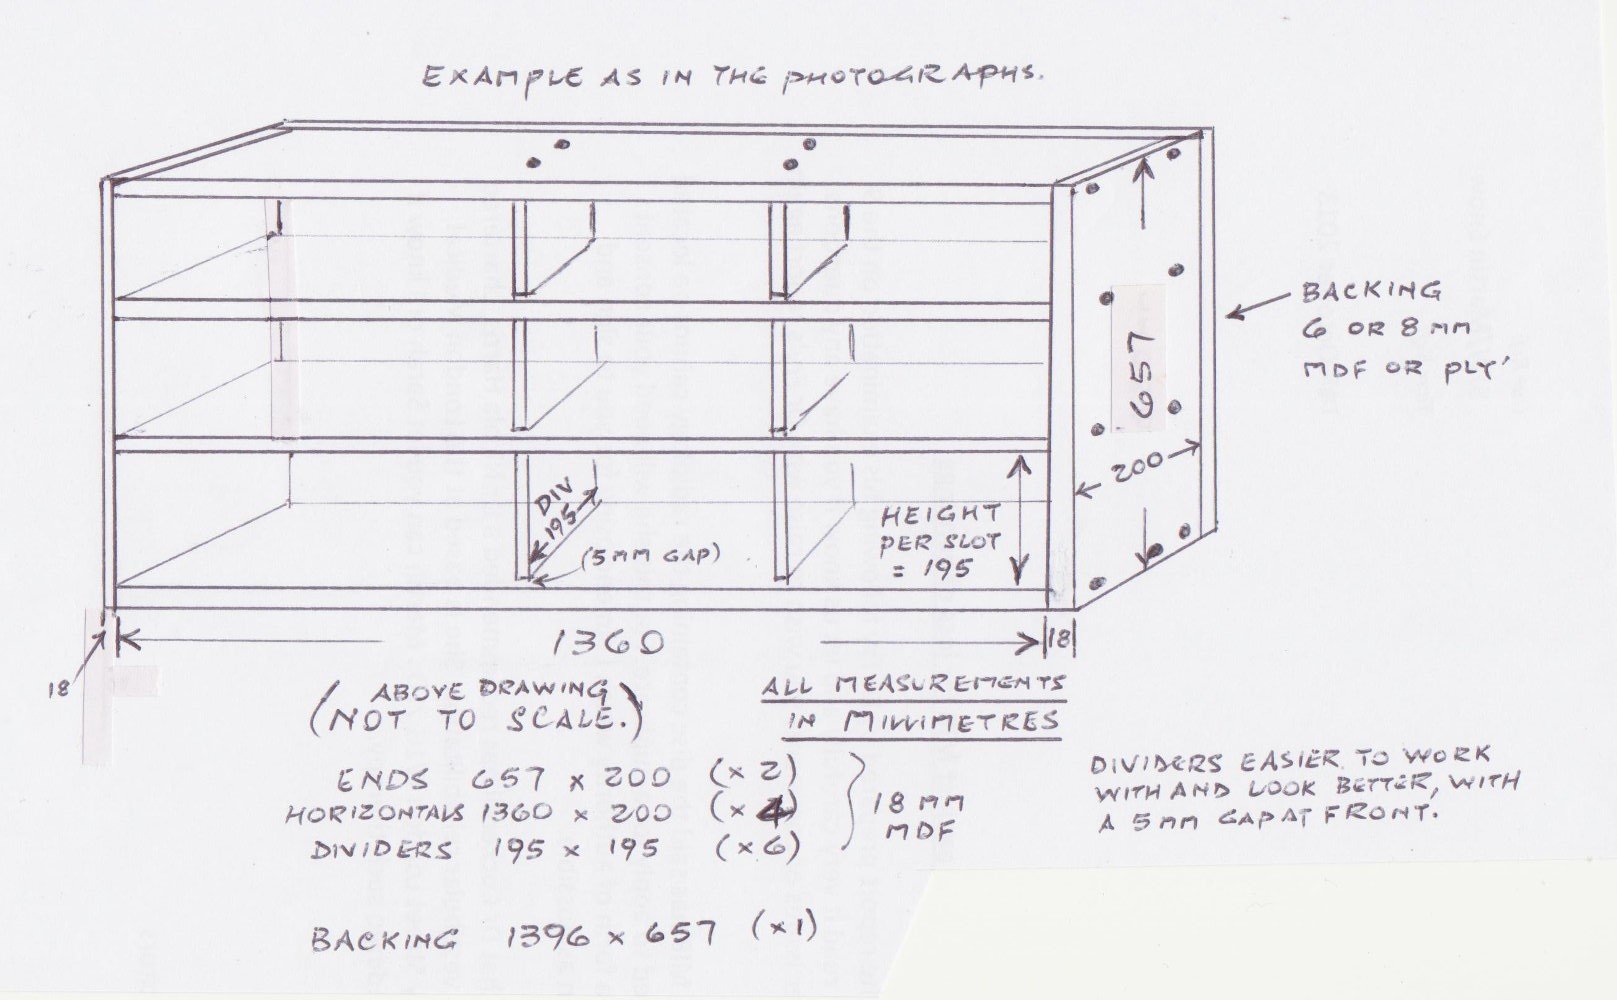 EXAMPLE AS IN THE PHOTOGRAPHS.
BACKING
6 OR 8 MM
MDF OR PLY'
657
200
DIV
195
(5 MM GAP)
HEIGHT
PER SLOT
= 195
18
1360
18
(ABOVE DRAWING
NOT TO SCALE.)
ALL MEASUREMENTS
IN MILLIMETRES
ENDS 657 x 200 (x 2)
HORIZONTALS 1360 x 200 (x 4)
DIVIDERS 195 x 195 (x 6)
18 MM
MDF
DIVIDERS EASIER TO WORK
WITH AND LOOK BETTER, WITH
A 5 MM GAP AT FRONT.
BACKING 1396 x 657 (x 1)